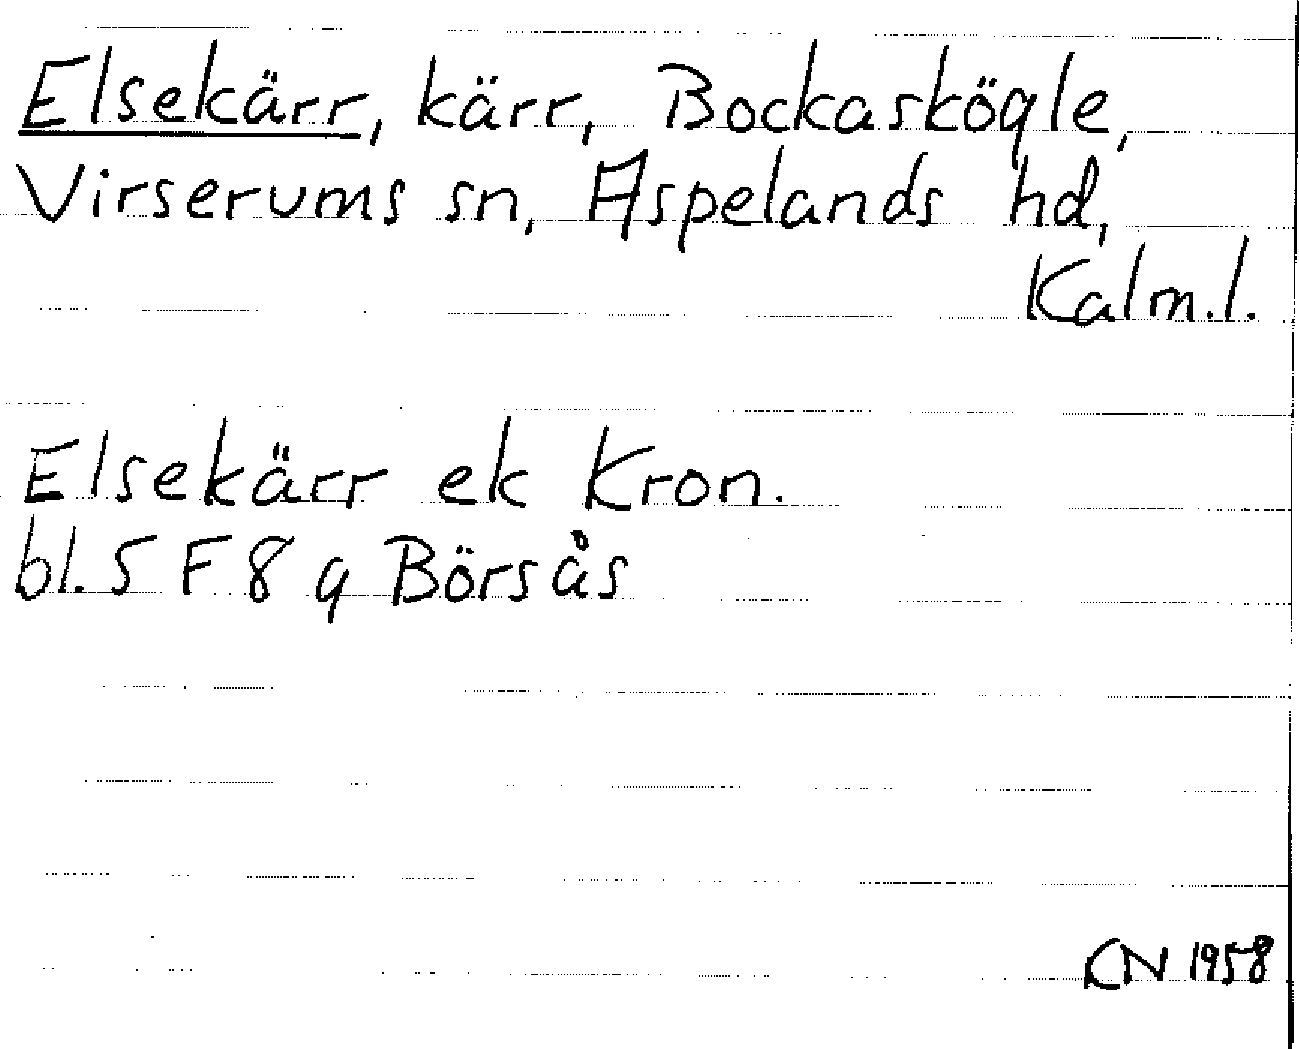 Elsekärr, kärr, Bockaskögle,
Virserums sn, Aspelands hd,
Kalm.l.
Elsekärr ek Kron.
bl. 5 F 8 g Börsås
CN 1958